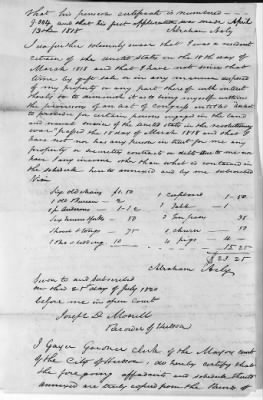 That his pension certificate is numbered
9.294, and that his first application was made April
13th 1818 Abraham
I do further solemnly swear that I was a resident
citizen of the United States on the 18th day of
March 1818 and that I have not since that
time by gift sale or in any manner disposed
of my property or any part thereof with intent
thereby so to diminish it as to bring myself within
the provisions of an act of Congress entitled an act
to provide for certain persons engaged in the land
and naval service of the United States in the revolutionary
war passed the 18 day of March 1818 and that I
have not nor has any person in trust for me any
property or securities contracts or debts due to me nor
have I any income other than what is contained in
the schedule hereto annexed and by me subscribed
Viz
Six old chairs $1.50 1 Cupboard 1-50
1 old Bureau - 2 1 Table 1
1 pr Andirons
50
Shovel & tongs 75 1 churn 50
10 4 pigs 4
15.25
$23.25
Abraham
Sworn to and subscribed
on this 25th day of July 1820
before me in open court
Joseph D. Monell
Recorder of Hudson
I Gayer Gardner clerk of the Mayors court
of the City of Hudson, do hereby certify that
the foregoing affidavit and schedule thereto
annexed are truly copied from the